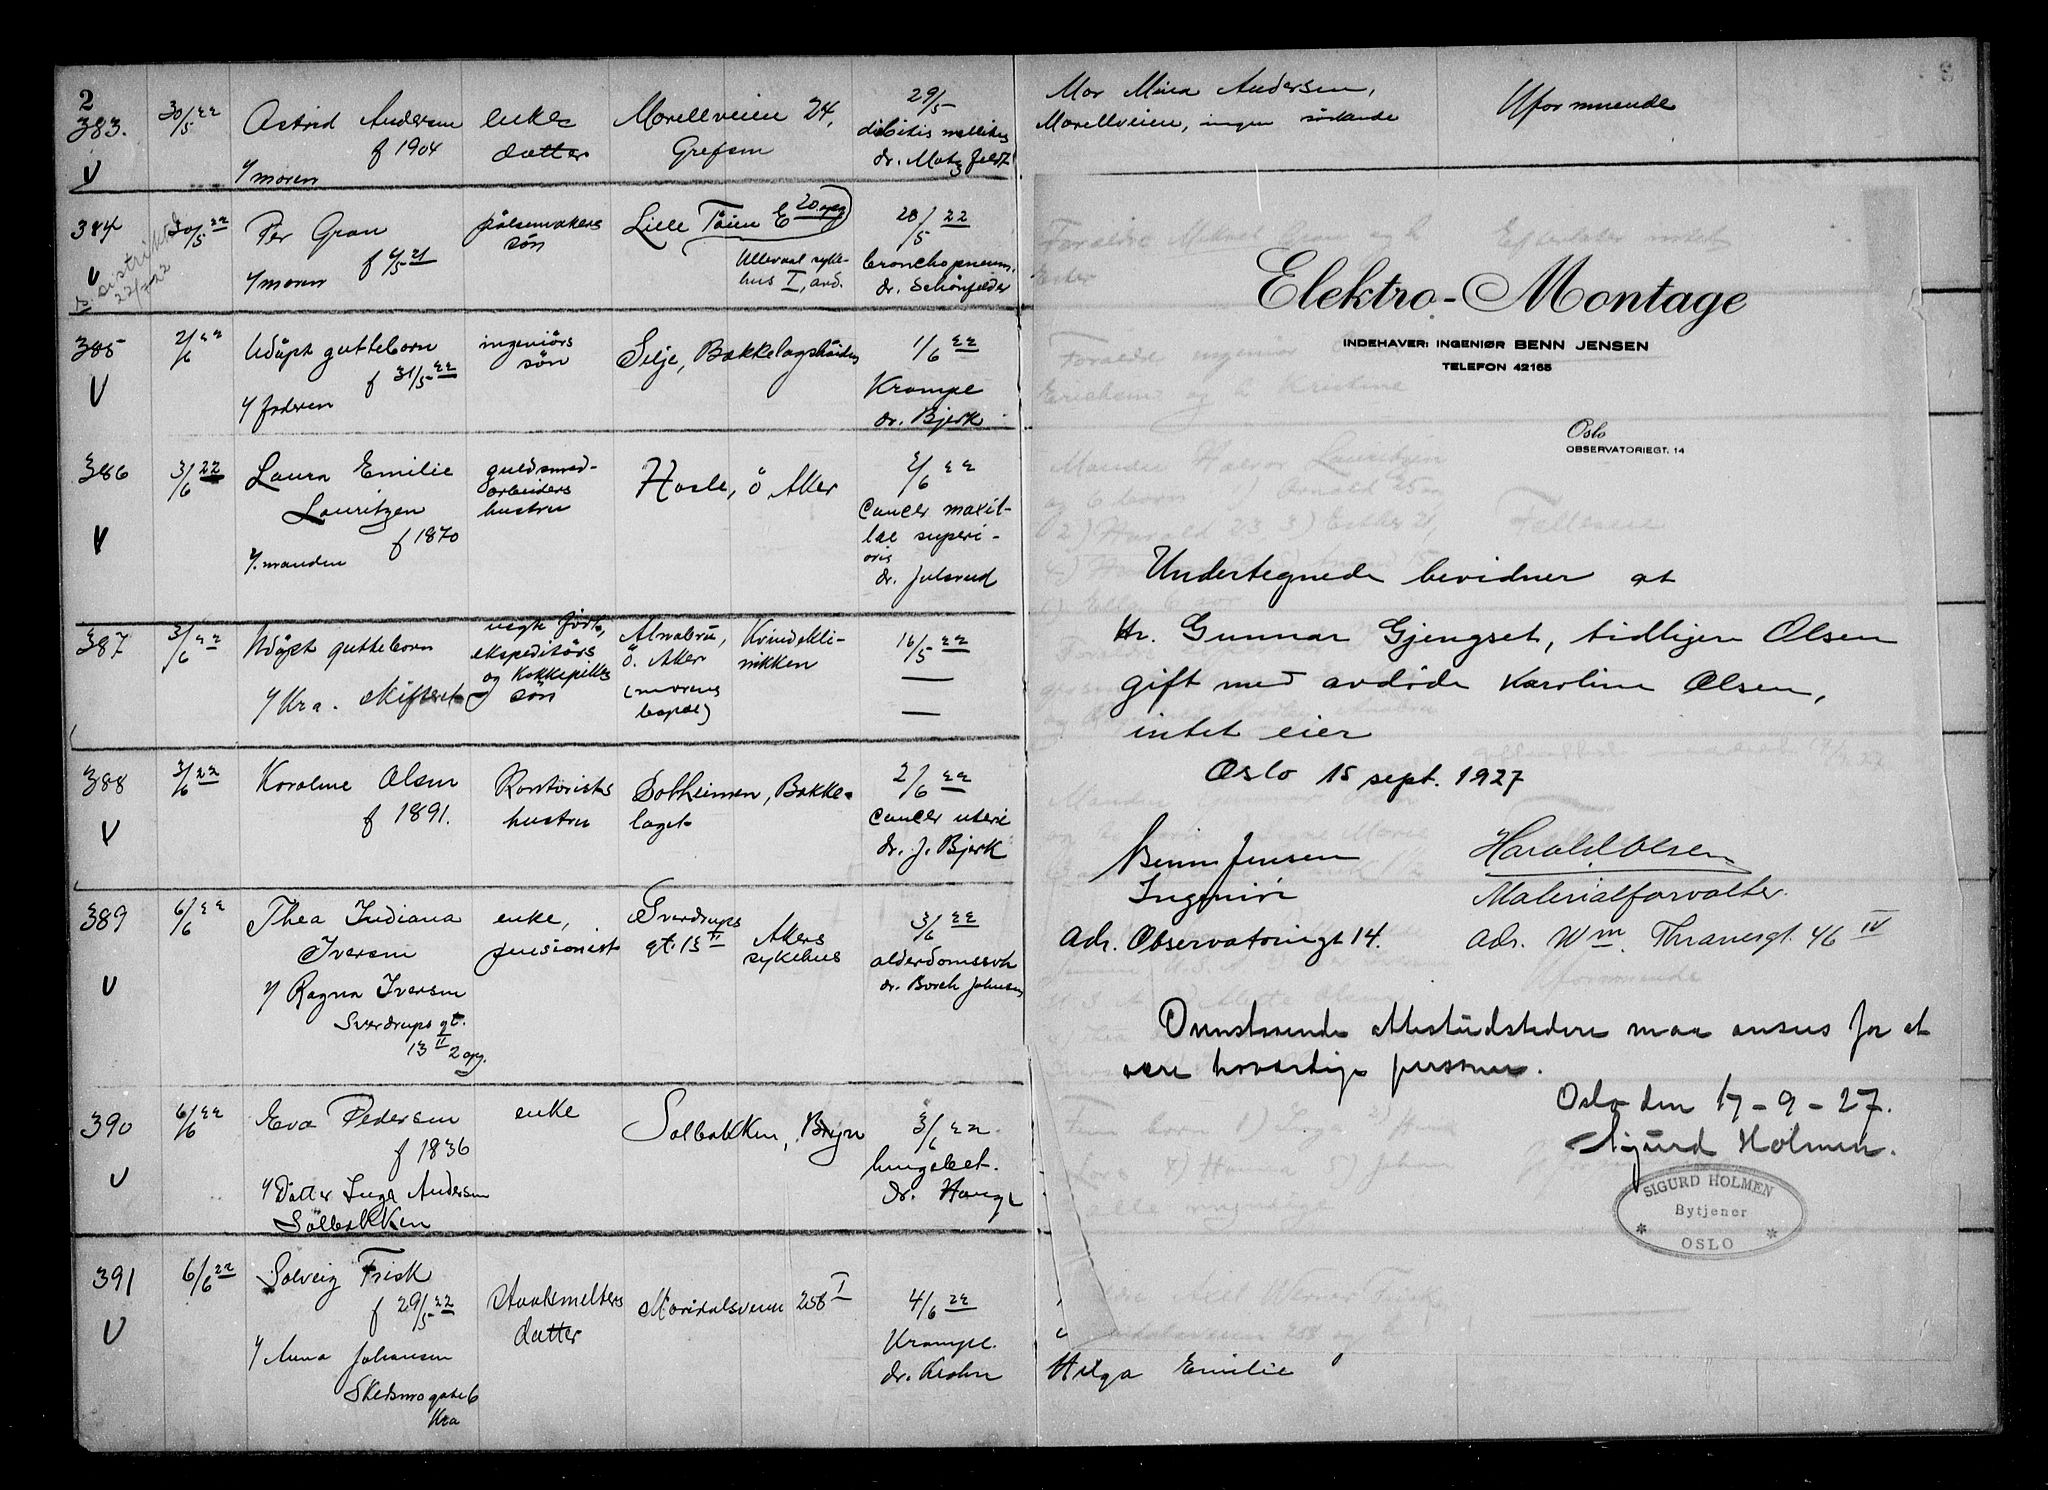 2
383.
30/5 22
Astrid Andersen
f 1904
v/ moren
enke=
datter
Morellveien 24,
Grefsen
29/5
diabetis mellitus
dr. Motzfeldt
Mor Mina Andersen,
Morellveien, ingen söskende
Uformuende
V
384
30/5 22
Per Gran
f 4/5 21
v/ moren
pölsemakers
sön
Lille Töien E 20 opg
Ullevaal syke-
hus I, avd.
28/5 22
bronchopneum.
dr. Schönfelder
V
22/7 22
385
2/6 22
Udöpt guttebarn
f 31/5 22
v/ faderen
ingeniörs
sön
Silje, Bækkelagshöiden
1/6 22
Krampe
dr. Bjerk
V
386
3/6 22
Laura Emilie
Lauritzen
f 1870
v/ manden
guldsmed-
arbeiders
hustru
Hasle, ö Aker
2/6 22
Cancer maxil-
lae superi-
oris
dr. Julsrud
V
387
3/6 22
Udöpt guttebarn
v/ Kra. skifteret
uegte födt,
ekspeditörs
og kokkepikes
sön
Alnabru,
Ö. Aker
(morens
bopæl)
Kvindekli-
nikken
16/5 22
388
3/6 22
Karoline Olsen
f 1891.
Kontorists
hustru
Solheimen, Bække-
laget
2/6 22
Cancer uteri
dr. J. Bjerk
V
389
6/6 22
Thea Indiana
Iversen
v/ Ragna Iversen
Sverdrups gt.
13 II 2 opg.
enke,
pensionist
Sverdrups
gt. 13 II
Akers
sykehus
3/6 22
alderdomssvk
dr. Borch Johnsen
V
390
6/6 22
Eva Pedersen
f 1836
v/ Datter Inga Andersen
Solbakken
enke
Solbakken, Bryn
3/6 22
lungebet.
dr. Hauge
V
391
6/6 22
Solveig Frisk
f 29/5 22
v/ Anna Johansen
Skedsmogate 6
Kra
Staalsmelters
datter
Maridalsveien 258 I
4/6 22
Krampe.
dr. Krohn
V
Helga Emilie
Elektro-Montage
INDEHAVER: INGENIØR BENN JENSEN
TELEFON 42165
Oslo
OBSERVATORIEGT. 14
Undertegnede bevidner at
Hr. Gunnar Gjengset, tidligere Olsen
gift med avdöde Karoline Olsen,
intet eier
Oslo 15 sept. 1927
Benn Jensen
Ingeniör
Adr. Observatoriegt 14.
Harald Olsen
Materialforvalter.
Adr. Wm. Thranesgt. 46 IV
Ovenstaaende attestudstedere maa ansees for at
være troværdige personer.
Oslo den 17-9-27.
Sigurd Holmen.
SIGURD HOLMEN
Bytjener
OSLO